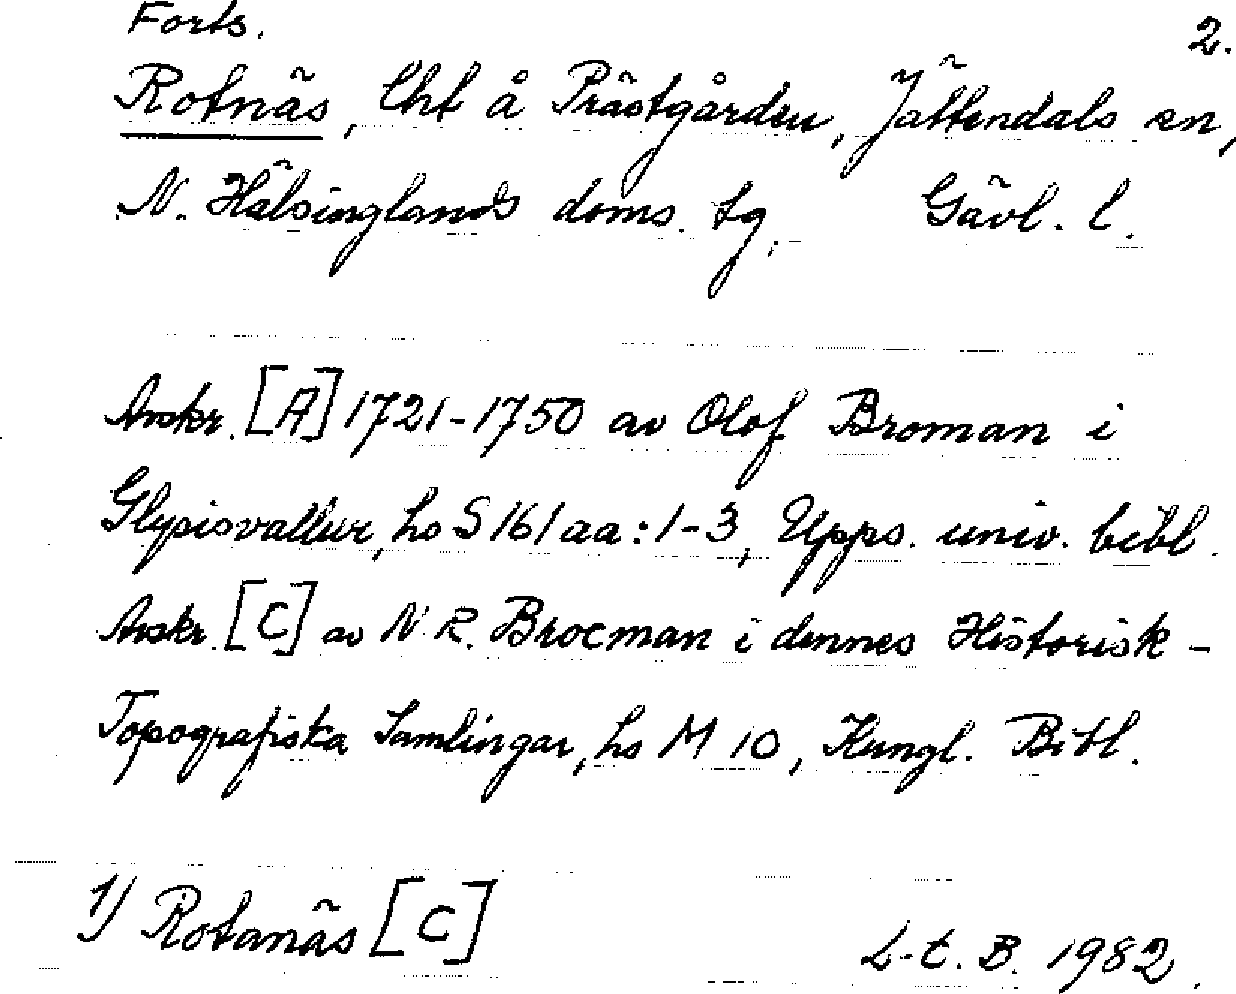 Forts. 2.
Rotnäs, lht å Prästgården, Jättendals sn,
N. Hälsinglands doms. tg, Gävl. l.
Avskr. [A] 1721-1750 av Olof Broman i
Glysisvallur, hs S 161 aa:1-3, Upps. univ. bibl.
Avskr. [C] av N. R. Brocman i dennes Historisk-
Topografiska Samlingar, hs M 10, Kungl. Bibl.
1) Rotanäs [C]
L-E. B. 1982.